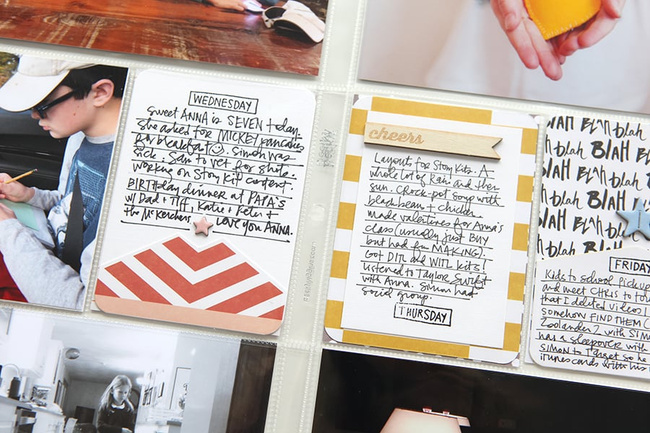 WEDNESDAY
Sweet ANNA is SEVEN today.
She asked for MICKEY pancakes
for breakfast. Simon was
sick. Sam to vet for shots.
working on Story Kit content.
BIRTHday dinner at PAPA'S
w/ Dad + Tiff, Katie + Peter +
the McKerchers. LOVE you ANNA.
cheers
Layouts for Story Kits. A
whole lot of rain and then
sun. Crock pot soup with
black bean + chicken.
made valentines for Anna's
class (usually just BUY
but had fun MAKING).
Got DIM and WITL kits!
Listened to Taylor Swift
with Anna. Simon had
social group.
THURSDAY
BLAH blah
BLAH blah
blah BLAH
BLAH blah
blah
FRIDAY
Kids to school. Pickup
and meet CHRIS to
that I deleted videos!
somehow FIND THEM
Zoolander 2 with
has a sleepover with
SIMON to Target so he
itunes cards with his